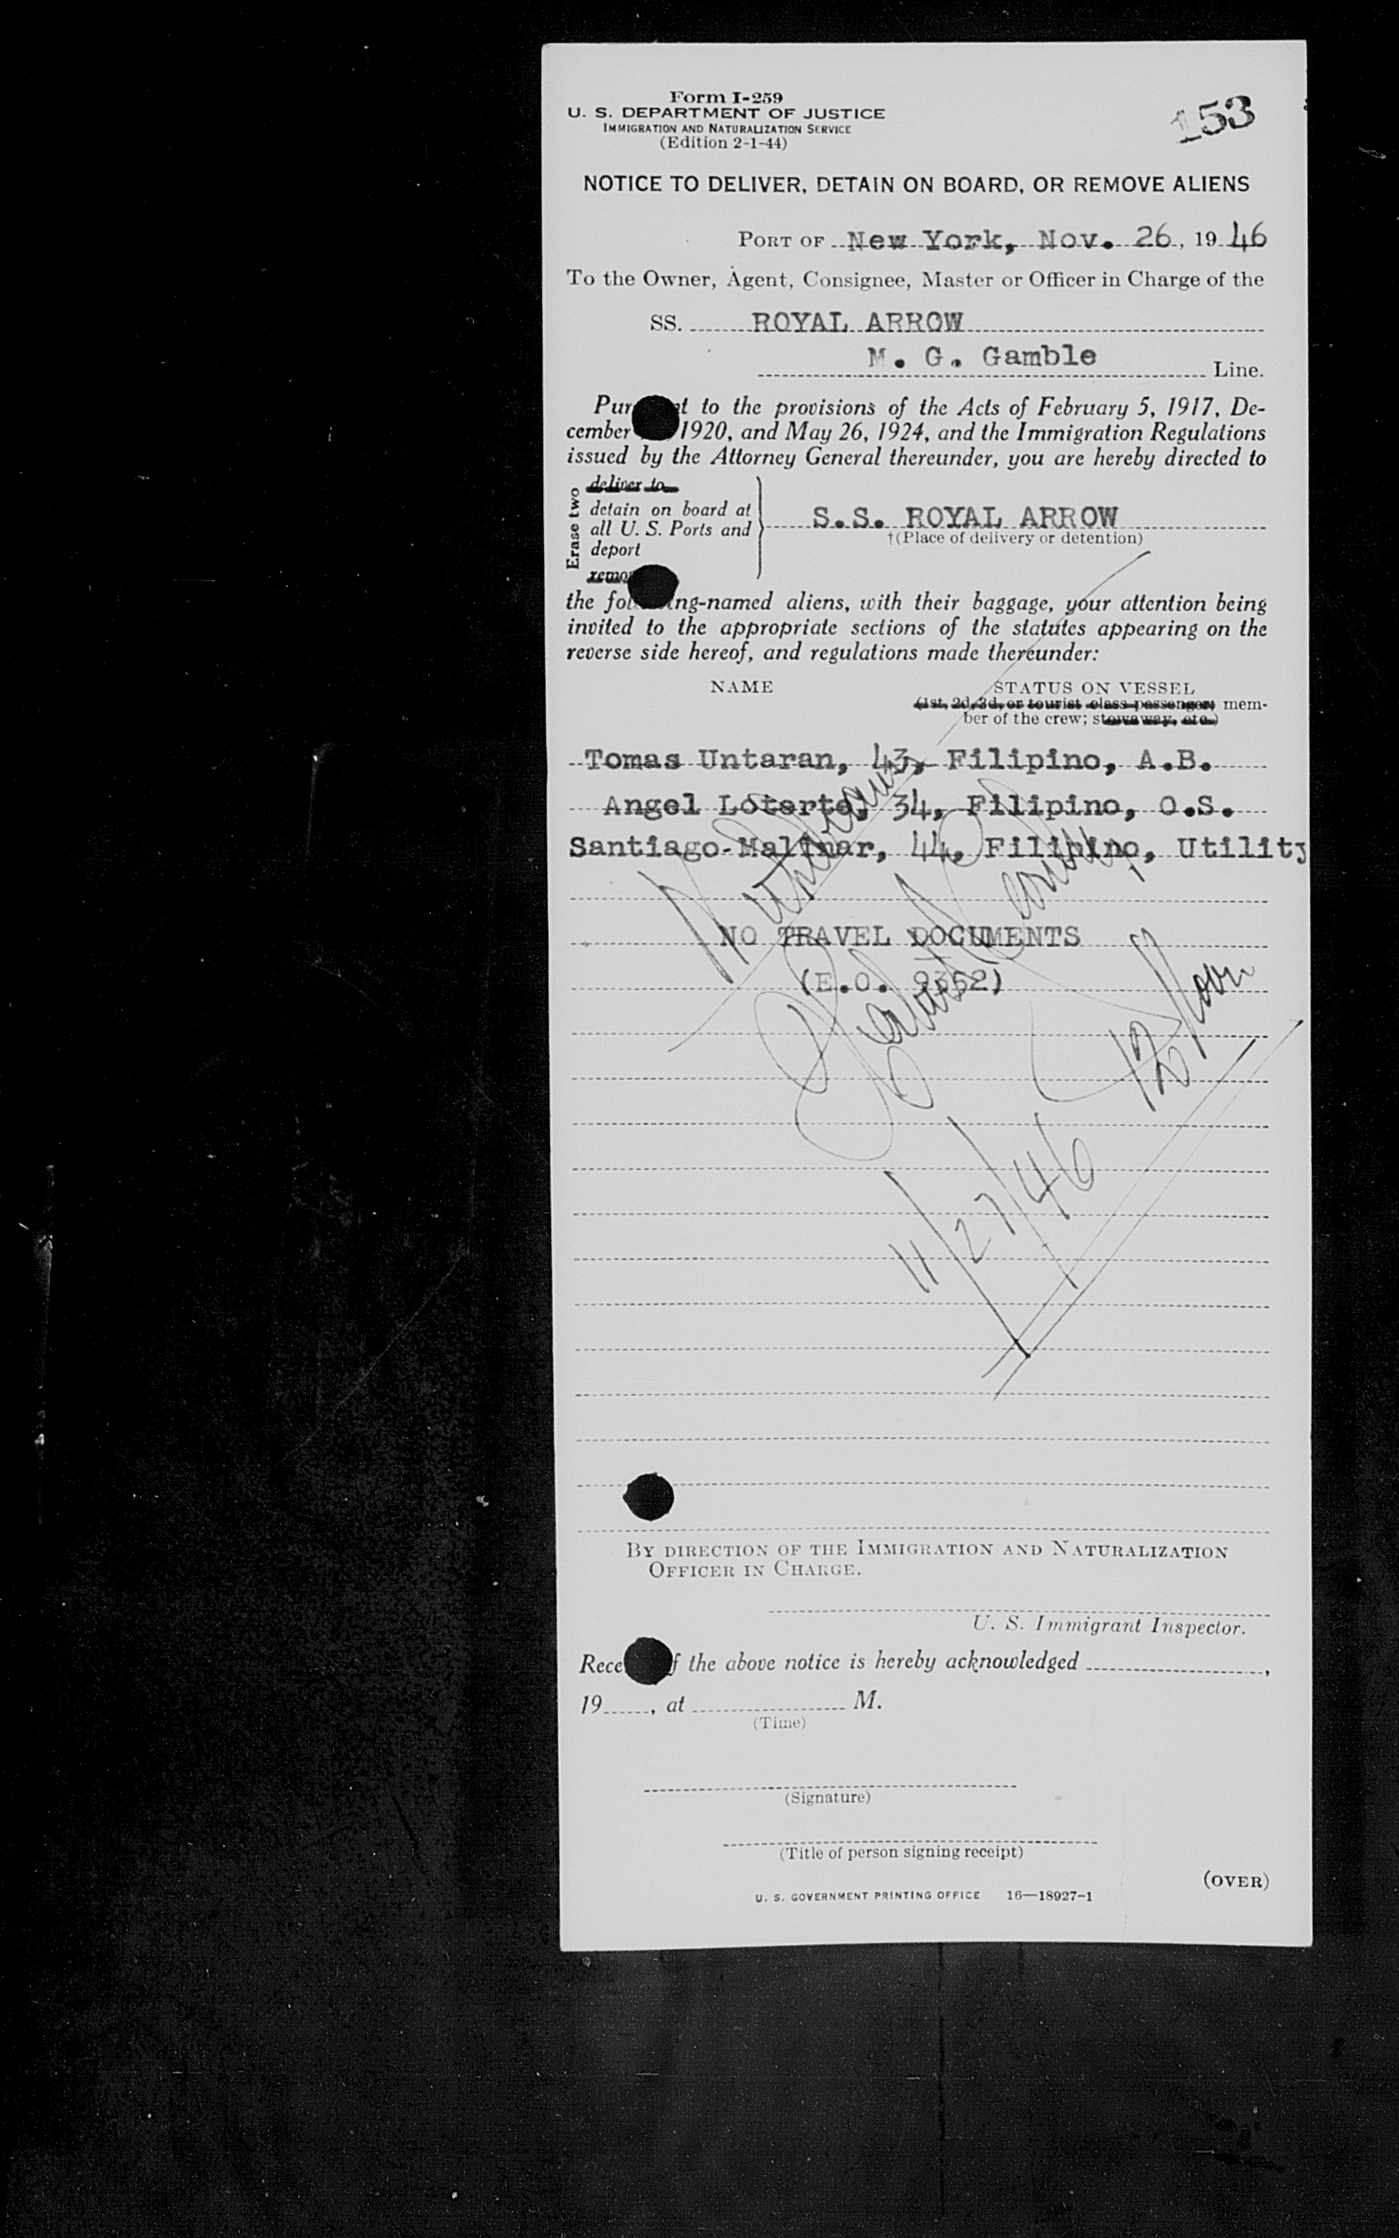 Form I-259
U. S. DEPARTMENT OF JUSTICE
IMMIGRATION AND NATURALIZATION SERVICE
(Edition 2-1-44)
153
NOTICE TO DELIVER, DETAIN ON BOARD, OR REMOVE ALIENS
PORT OF New York, Nov. 26, 19 46
To the Owner, Agent, Consignee, Master or Officer in Charge of the
SS. ROYAL ARROW
M. G. Gamble Line.
to the provisions of the Acts of February 5, 1917, De-
cember 1920, and May 26, 1924, and the Immigration Regulations
issued by the Attorney General thereunder, you are hereby directed to
Erase two
deliver to
detain on board at
all U. S. Ports and
deport
S.S. ROYAL ARROW
†(Place of delivery or detention)
the -named aliens, with their baggage, your attention being
invited to the appropriate sections of the statutes appearing on the
reverse side hereof, and regulations made thereunder:
NAME STATUS ON VESSEL
(1st, 2d, 3d, or tourist class passenger; mem-
ber of the crew; stowaway, etc.)
Tomas Untaran, 43, Filipino, A.B.
Angel Loterte, 34, Filipino, O.S.
Santiago Malinar, 44, Filipino, Utility
NO TRAVEL DOCUMENTS
(E.O. 9352)
12 Noon
11/27/46
BY DIRECTION OF THE IMMIGRATION AND NATURALIZATION
OFFICER IN CHARGE.
U. S. Immigrant Inspector.
the above notice is hereby acknowledged ,
19 , at M.
(Time)
(Signature)
(Title of person signing receipt)
(OVER)
U. S. GOVERNMENT PRINTING OFFICE 16—18927-1